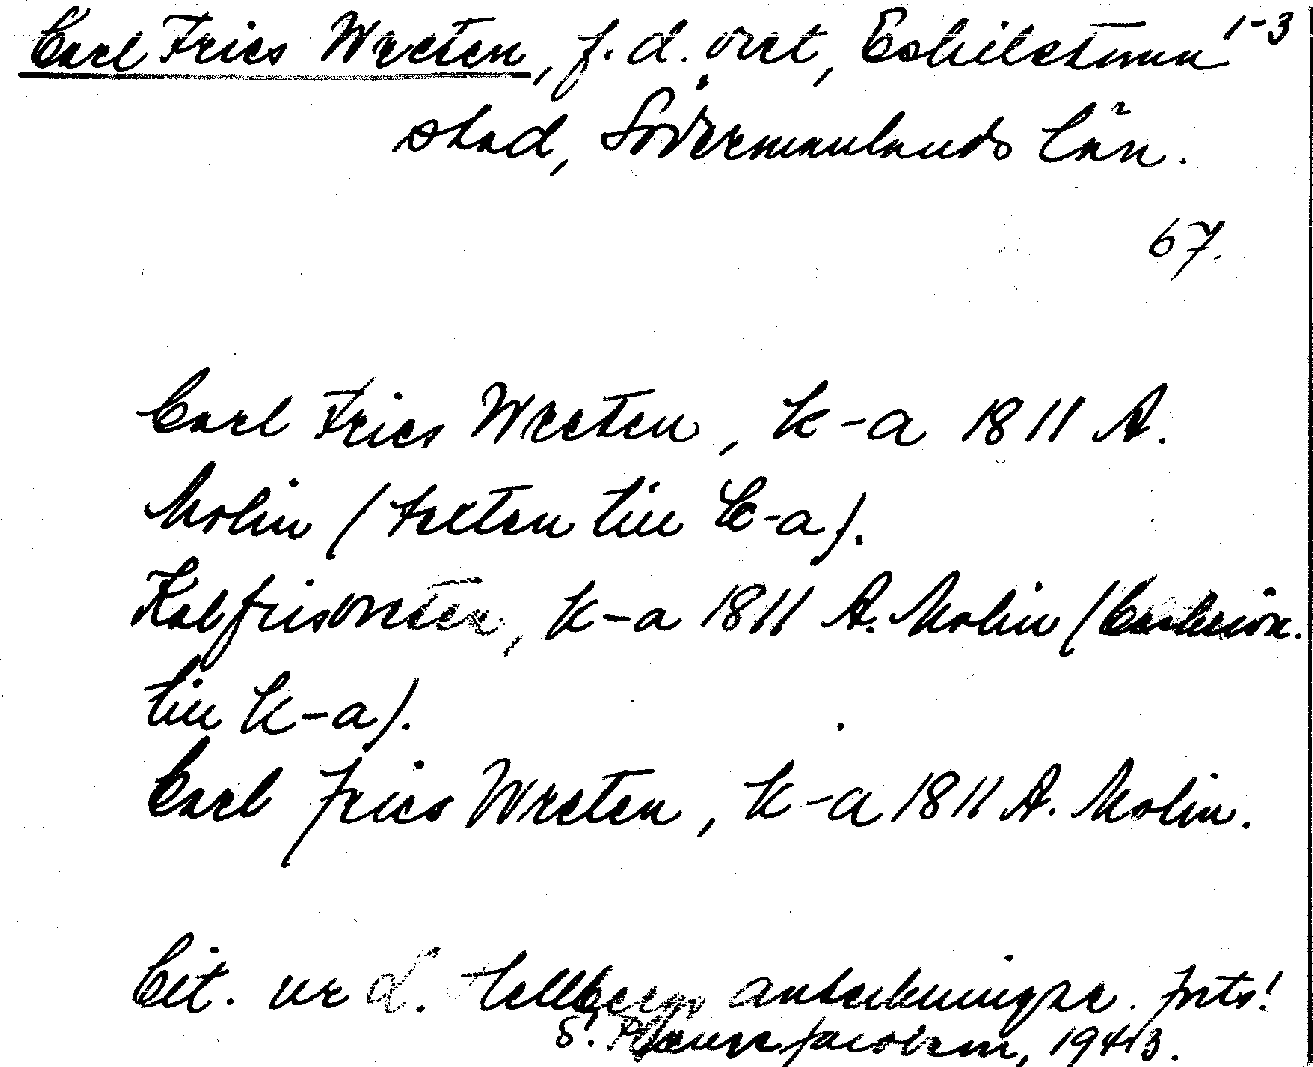 Carl Fries Wreten, f.d. vret, Eskilstuna 1-3
stad, Södermanlands län.
67.
Carl Fries Wreten, k-a 1811 A.
Molin (texten till k-a).
Kalfrisvreten, k-a 1811 A. Molin (
till k-a).
Carl fries Wreten, k-a 1811 A. Molin.
Cit. ur L. Hellbergs anteckningar. forts!
S. Jacobsson, 1943.